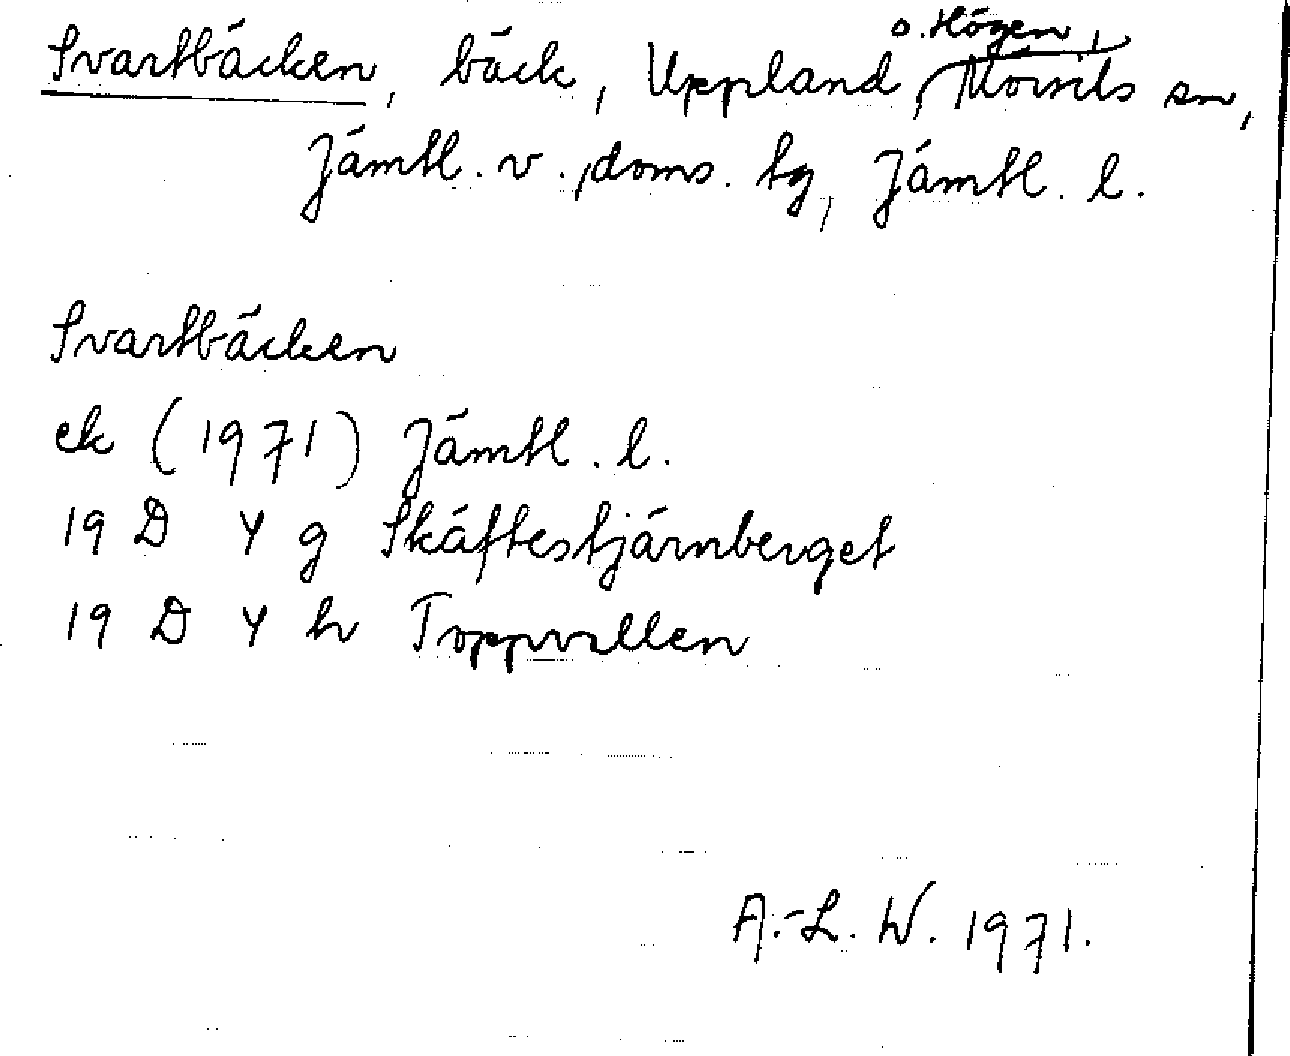 Svartbäcken, bäck, Uppland o. Högen, Mörsils sn,
Jämtl. v. doms. tg, Jämtl. l.
Svartbäcken
ek (1971) Jämtl. l.
19 D 4 g Skäftestjärnberget
19 D 4 h Toppvallen
A.-L. W. 1971.